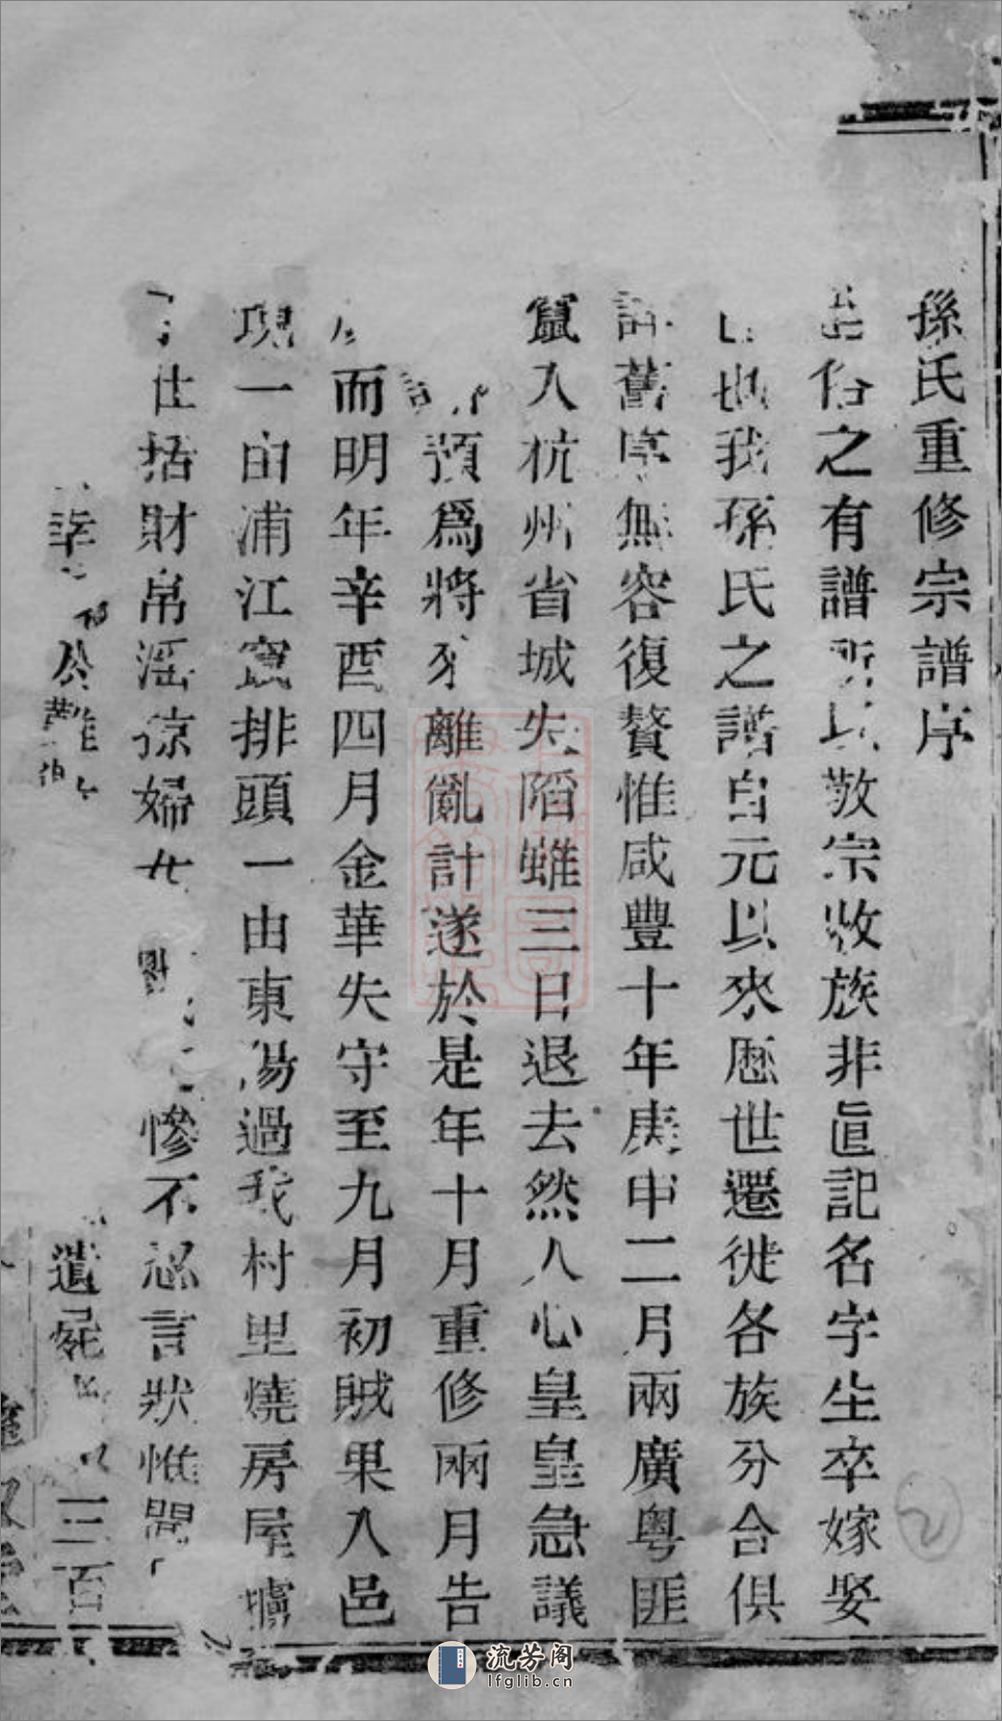 孫氏重修宗譜序
俗之有譜所以敬宗收族非直記名字生卒嫁娶
也我孫氏之譜自元以來歷世遷徙各族分合俱
詳舊序無容復贅惟咸豐十年庚申二月兩廣粵匪
竄入杭州省城失陷雖三日退去然人心皇皇急議
預爲將來離亂計遂於是年十月重修兩月告
而明年辛酉四月金華失守至九月初賊果入邑
現一由浦江竄排頭一由東陽過我村里燒房屋擄
仕括財帛滛掠婦女戮慘不忍言狀惟聞
幸公難遺屍三百
流芳阁
lfglib.cn